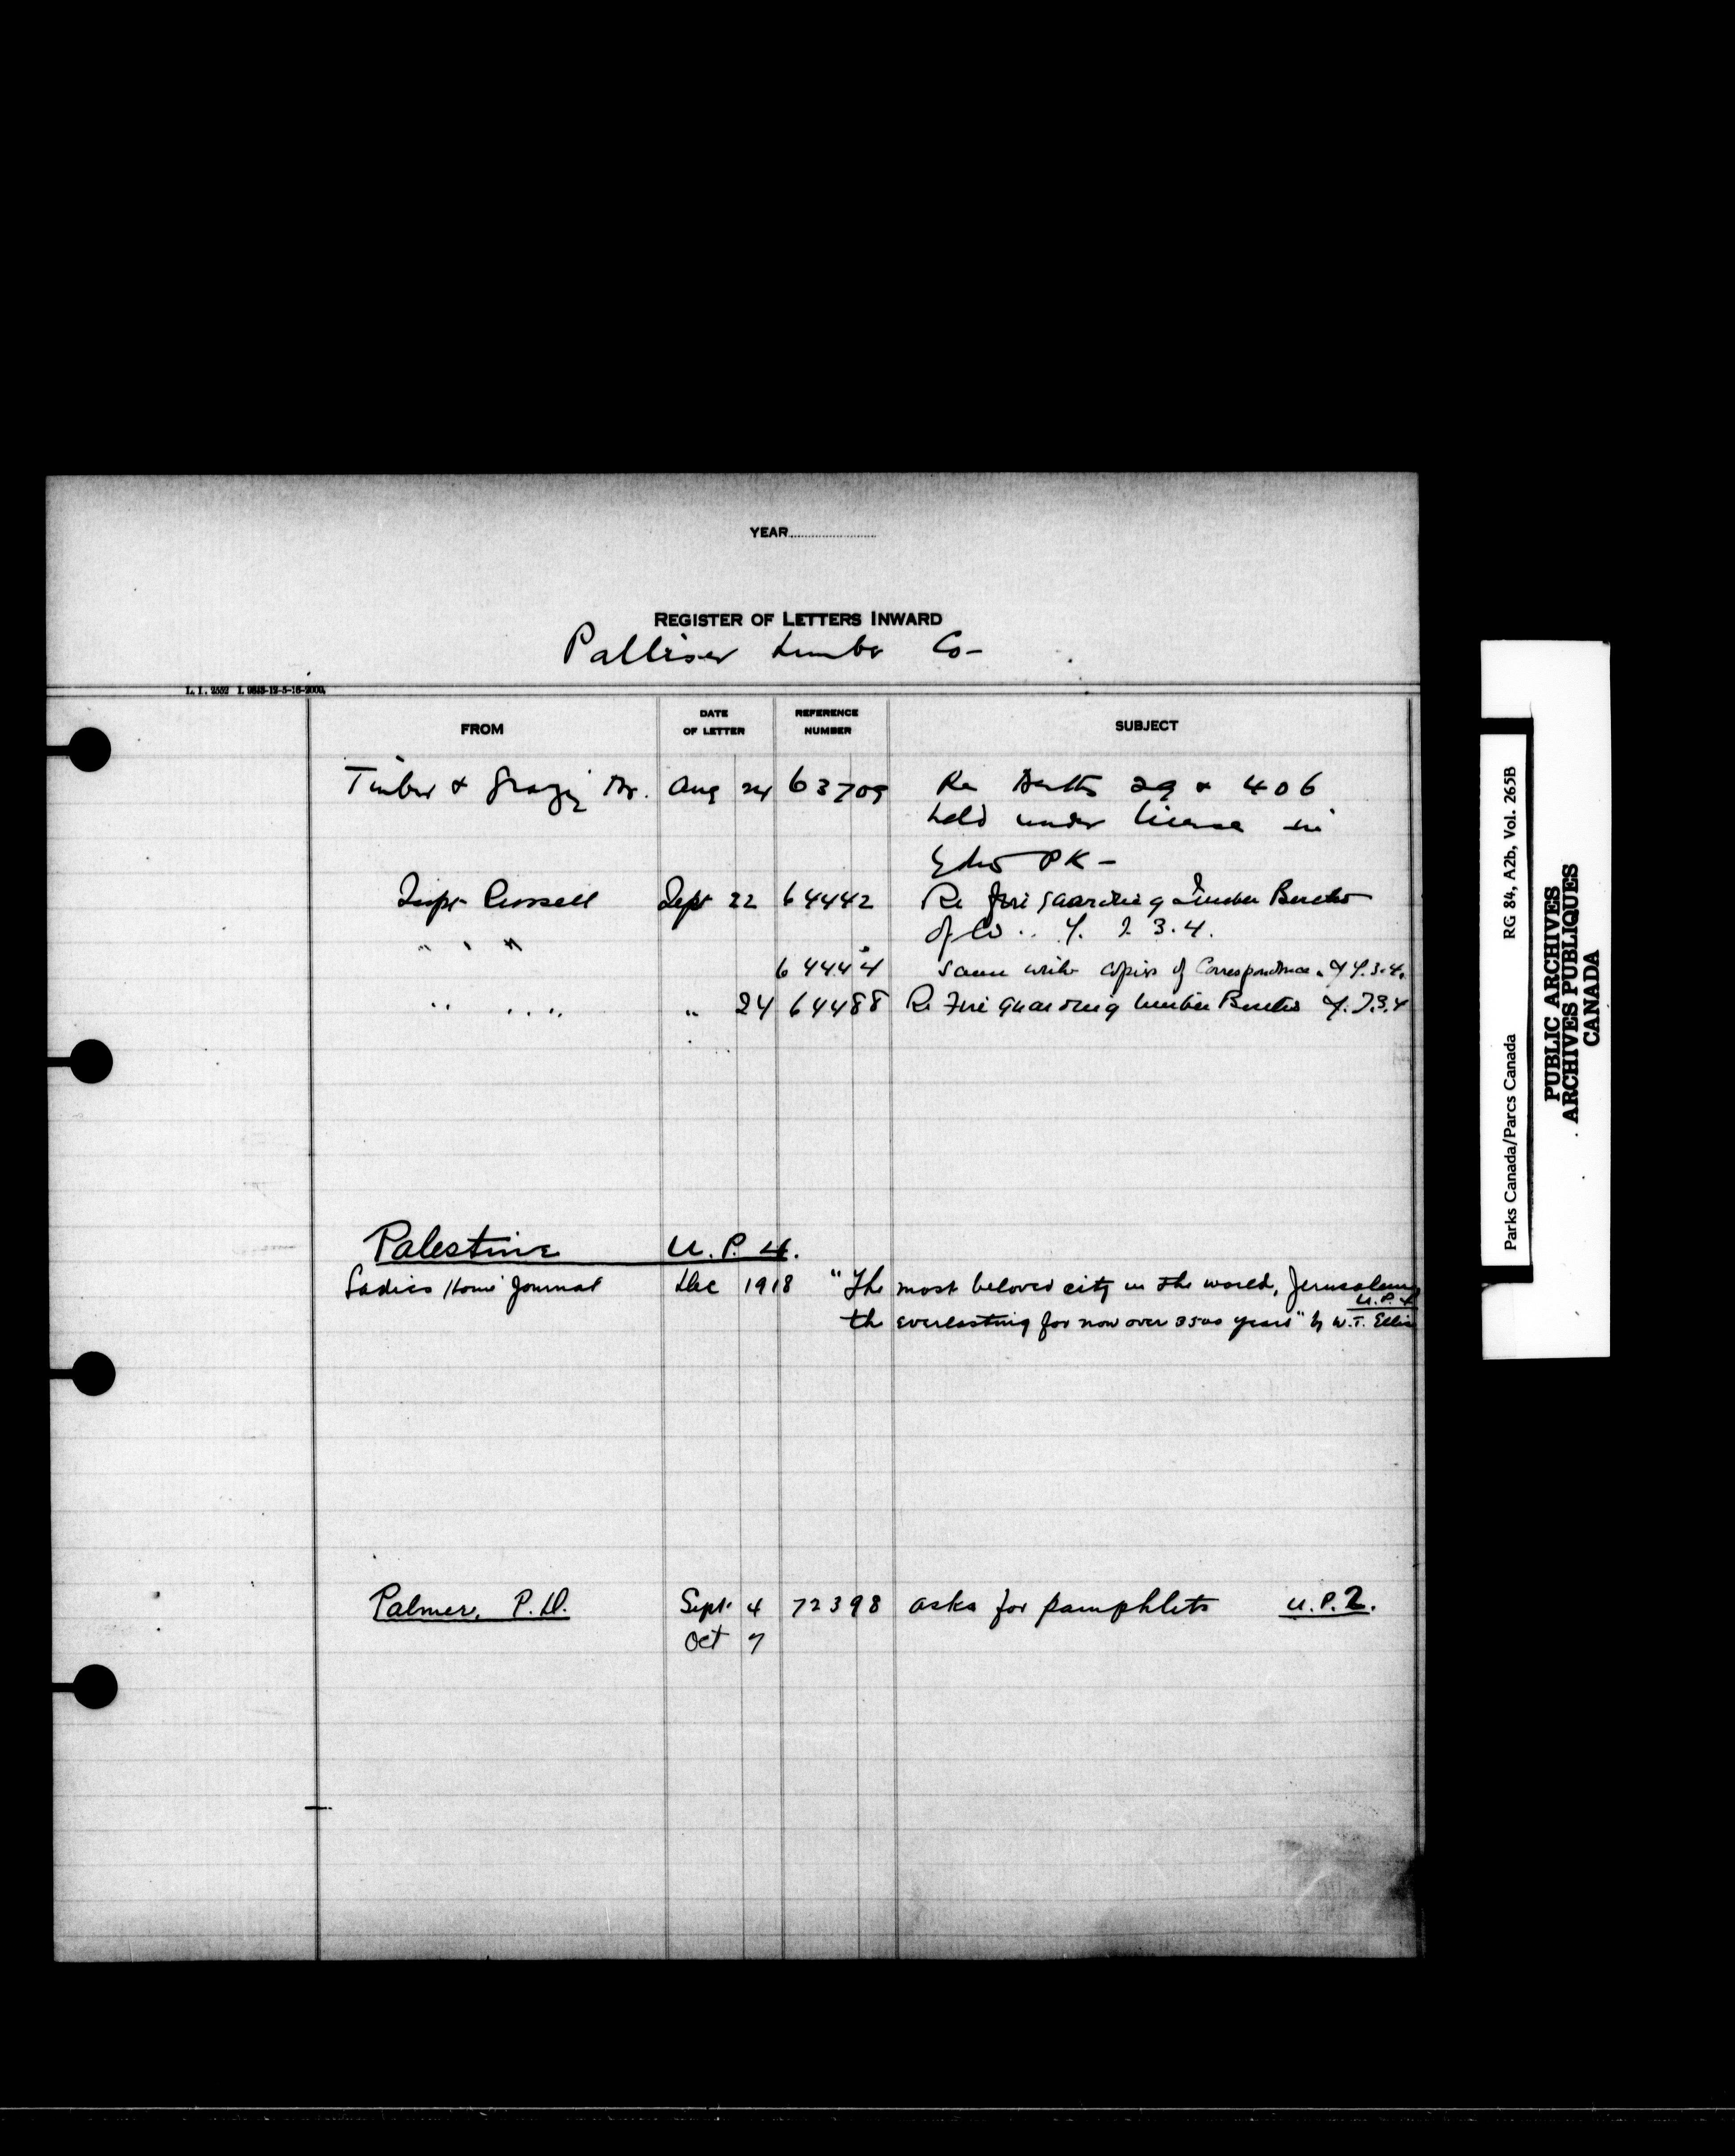 YEAR
REGISTER OF LETTERS INWARD
Palliser Lumber Co-
L. I. 2552 I. 9843-12-5-16-2000.
FROM DATE OF LETTER REFERENCE NUMBER SUBJECT
Timber & Grazing Br. Aug 24 63709 Re Berths 29 & 406
held under license in
PK -
Supt Russell Sept 22 64442 Re fire guarding Timber Berths
of Co .. Y. 2. 3. 4.
" " " 64444 Same with copies of Correspondence. Y. 3. 4.
" " " 24 64488 Re Fire guarding timber Berths Y. 2. 3. 4
Palestine U. P. 4.
Ladies Home Journal Dec 1918 "The most beloved city in the world, Jerusalem
U. P. 4
the everlasting for now over 3500 years" by W. T. Ellis
Palmer, P. D. Sept. 4 72398 asks for pamphlets U. P. 2.
Oct 7
Parks Canada/Parcs Canada RG 84, A2b, Vol. 265B
PUBLIC ARCHIVES
ARCHIVES PUBLIQUES
CANADA